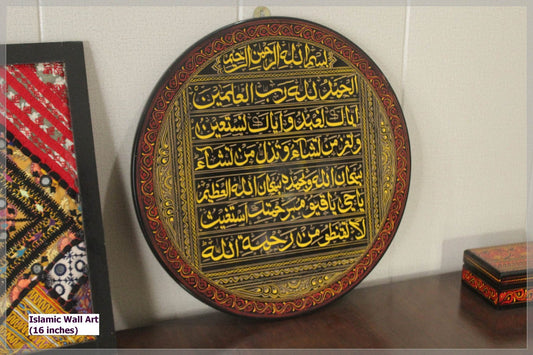 بسم الله الرحمن الرحيم
الحمد لله رب العالمين
اياك نعبد واياك نستعين
وتعز من تشاء وتذل من تشاء
سبحان الله وبحمده سبحان الله العظيم
يا حي يا قيوم برحمتك استغيث
لا تقنطو من رحمة الله
Islamic Wall Art
(16 inches)